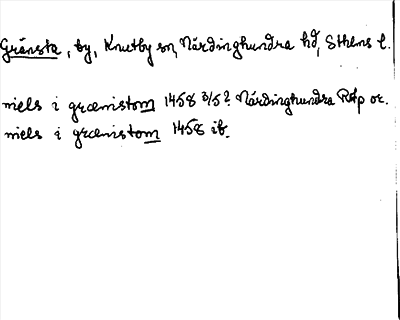 Gränsta, by, Knutby sn, Närdinghundra hd, Sthlms l.
niels i grænistom 1458 3/5? Närdinghundra RApp or.
niels i grænistom 1458 ib.